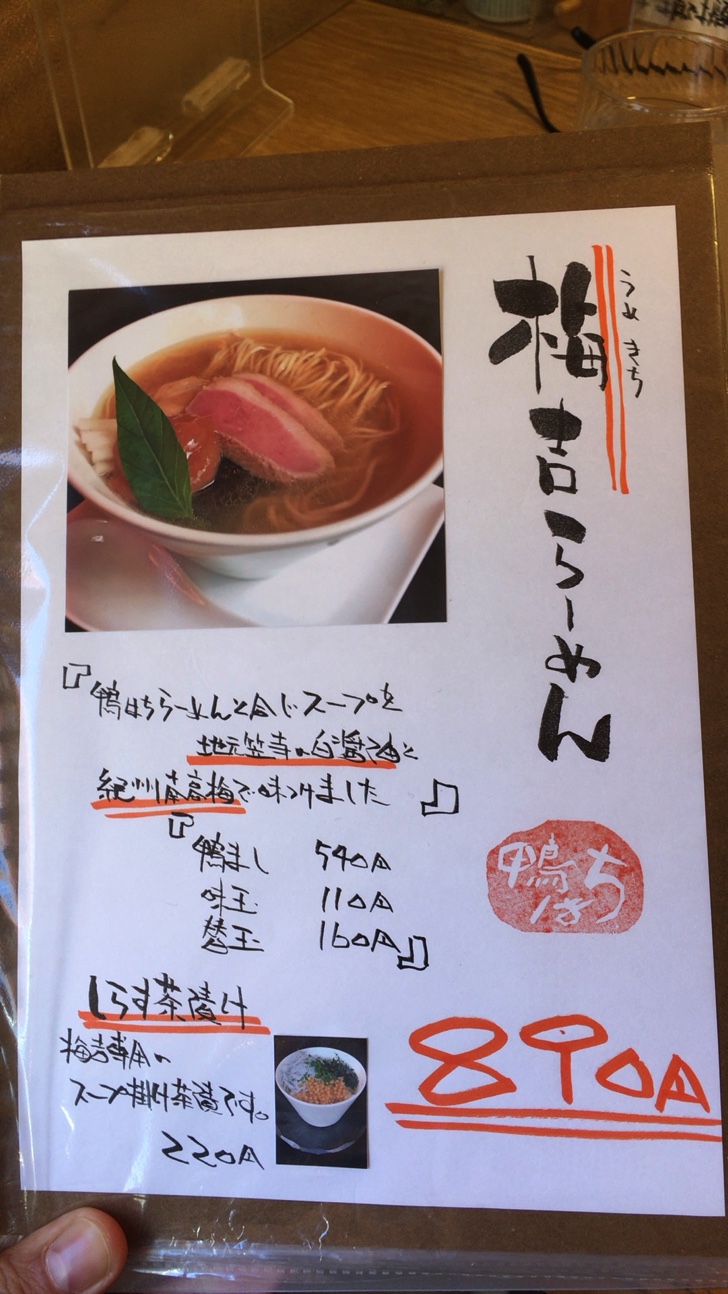 うめきち
梅吉らーめん
『鴨はちらーめんと同じスープを
地元笠寺の白醤油と
紀州南高梅で味つけました』
『鴨まし 540円
味玉 110円
替玉 160円』
鴨
はち
しらす茶漬け
梅吉専用の
スープ掛け茶漬です。
220円
890円